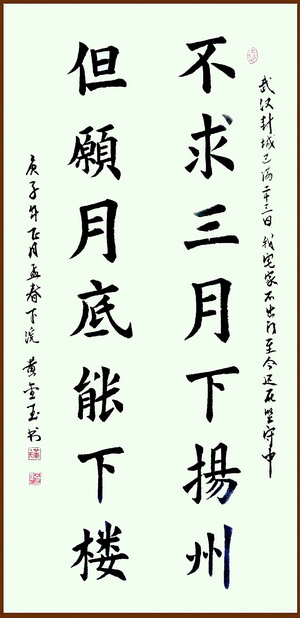 武汉封城已满二十三日我宅家不出门至今还在坚守中
不求三月下揚州
但願月底能下楼
庚子年正月孟春下浣 黄金玉书